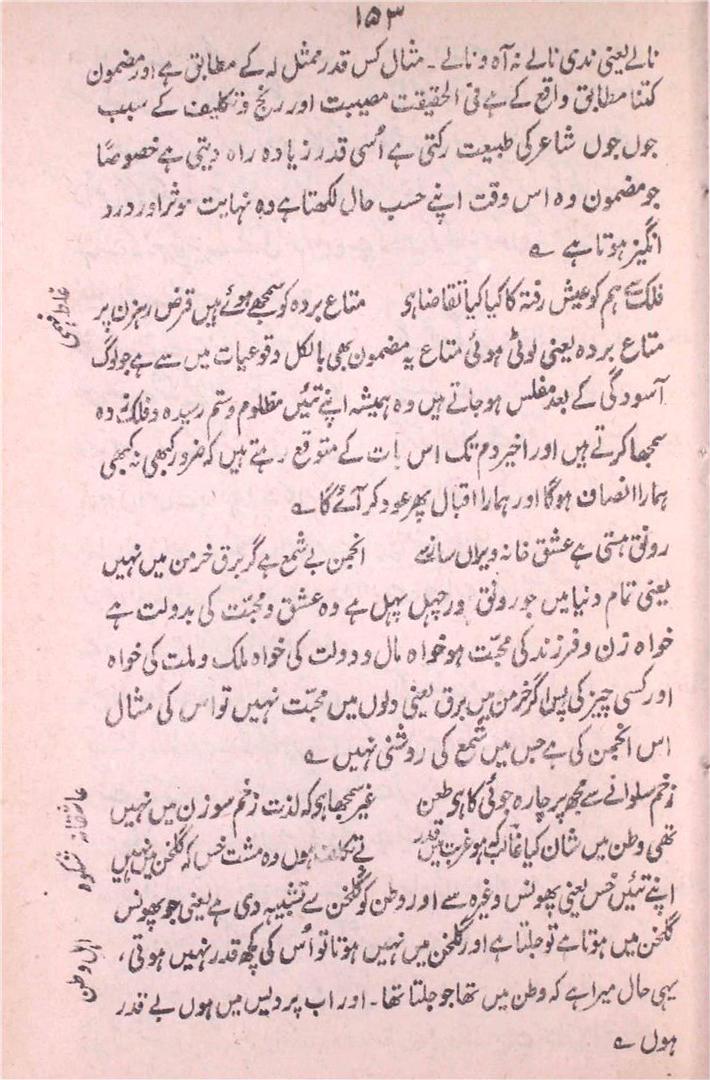 ۱۵۳
نالے یعنی ندی نالے نہ آہ و نالے ۔ مثال کس قدر ممثل لہ کے مطابق ہے اور مضمون
کتنا مطابق واقع کے ہے فی الحقیقت مصیبت اور رنج و تکلیف کے سبب
جوں جوں شاعر کی طبیعت رکتی ہے اُسی قدر زیادہ راہ دیتی ہے خصوصًا
جو مضمون وہ اس وقت اپنے حسب حال لکھتا ہے وہ نہایت موثر اور درد
انگیز ہوتا ہے ؎
فلک سے ہم کو عیش رفتہ کا کیا کیا تقاضا ہو متاع بردہ کو سمجھے ہوئے ہیں قرض رہزن پر
غلط فہمی
متاع بردہ یعنی لوٹی ہوئی متاع یہ مضمون بھی بالکل وقوعیات میں سے ہے جو لوگ
آسودگی کے بعد مفلس ہو جاتے ہیں وہ ہمیشہ اپنے تئیں مظلوم و ستم رسیدہ و فلک زدہ
سمجھا کرتے ہیں اور اخیر دم تک اس بات کے متوقع رہتے ہیں کہ ضرور کبھی نہ کبھی
ہمارا انصاف ہوگا اور ہمارا اقبال پھر عود کر آئے گا ؎
رونق ہستی ہے عشق خانہ ویراں ساز سے انجمن بے شمع ہے گر برق خرمن میں نہیں
یعنی تمام دنیا میں جو رونق اور چہل پہل ہے وہ عشق و محبّت کی بدولت ہے
خواہ زن و فرزند کی محبّت ہو خواہ مال و دولت کی خواہ ملک و ملت کی خواہ
اور کسی چیز کی پس اگر خرمن میں برق یعنی دلوں میں محبّت نہیں تو اس کی مثال
اس انجمن کی ہے جس میں شمع کی روشنی نہیں ؎
زخم سلوانے سے مجھ پر چارہ جوئی کا ہو طعن غیر سمجھا ہو کہ لذت زخم سوزن میں نہیں
عاشقانہ
تھی وطن میں شان کیا غالب کہ ہو غربت میں قدر بے تکلف ہوں وہ مشت خس کہ گلخن میں نہیں
شکوہ
اپنے تئیں خس یعنی پھونس وغیرہ سے اور وطن کو گلخن سے تشبیہ دی ہے یعنی جو پھونس
گلخن میں ہوتا ہے تو جلتا ہے اور گلخن میں نہیں ہوتا تو اُس کی کچھ قدر نہیں ہوتی ،
اہل وطن
یہی حال میرا ہے کہ وطن میں تھا جو جلتا تھا ۔ اور اب پردیس میں ہوں بے قدر
ہوں ؎